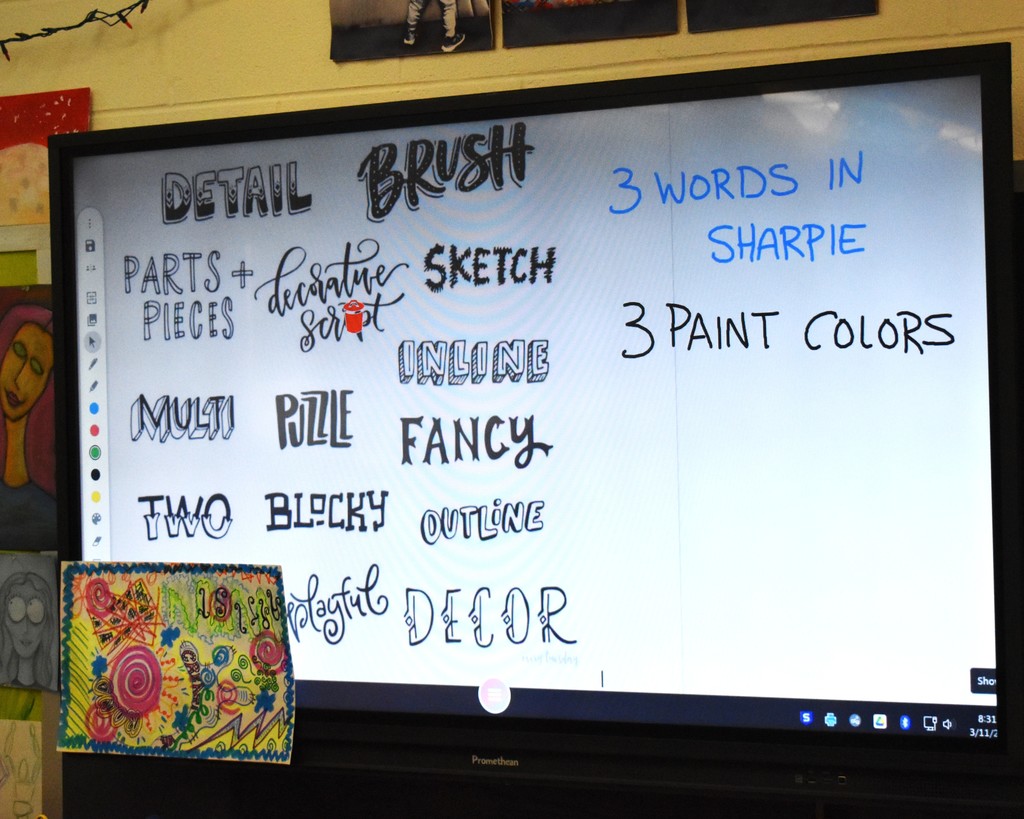 DETAIL
BRUSH
PARTS +
PIECES
decorative
script
SKETCH
INLINE
MULTI
PUZZLE
FANCY
TWO
BLOCKY
OUTLINE
playful
DECOR
3 WORDS IN
SHARPIE
3 PAINT COLORS
Show
8:31
3/11/2
Promethean